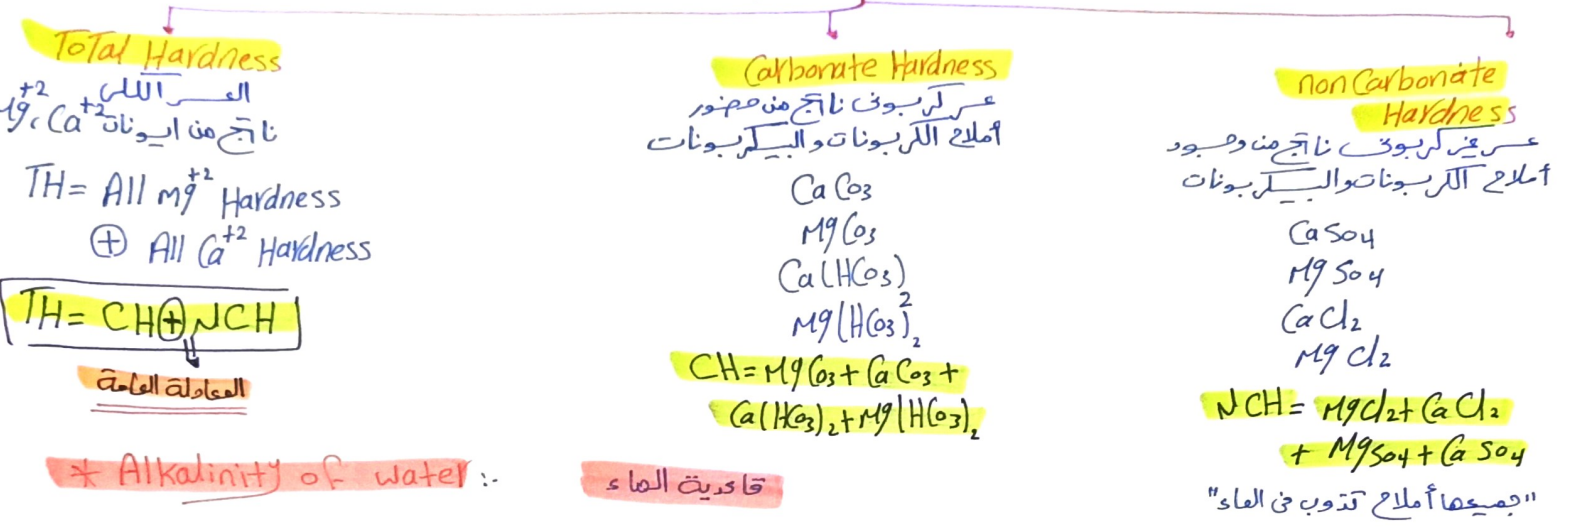 Total Hardness
العسر الكلى
ناتج من ايونات Mg+2، Ca+2
TH = All Mg+2 Hardness
⊕ All Ca+2 Hardness
TH = CH ⊕ NCH
المعادلة العامة
Carbonate Hardness
عسر كربونى ناتج من حضور
أملاح الكربونات والبيكربونات
CaCo3
MgCo3
Ca(HCo3)2
Mg(HCo3)2
CH = MgCo3 + CaCo3 +
Ca(HCo3)2 + Mg(HCo3)2
non Carbonate
Hardness
عسر غير كربونى ناتج من وجود
أملاح الكربونات والبيكربونات
CaSo4
MgSo4
CaCl2
MgCl2
NCH = MgCl2 + CaCl2
+ MgSo4 + CaSo4
"جميعها أملاح تذوب فى الماء"
* Alkalinity of water :-
قاعدية الماء